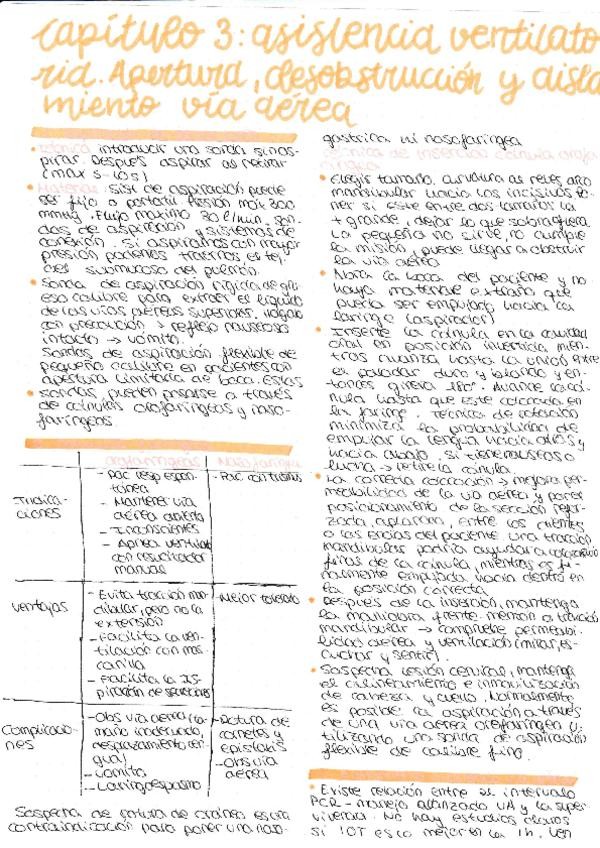 Capítulo 3: asistencia ventilato
ria. Apertura, desobstrucción y aisla
miento vía aérea
• Técnica introducir una sonda sin as-
pirar. Después aspirar al retirar
(max 5-10s)
• Material: sist de aspiración puede
ser fijo o portatil Presión max 300
mmHg. Flujo maximo 30 l/min. son
das de aspiración y sistemas de
conexión. si aspiramos con mayor
presión podemos traernos el tej
del submucoso del pulmón.
• Sonda de aspiración rígida de gru
eso calibre para extraer el liquido
de las vías aéreas superiores.
con precaución → reflejo nauseoso
intacto → vómito.
Sondas de aspiración flexible de
pequeño calibre en pacientes con
apertura limitada de boca. Estas
• sondas, pueden pasarse a través
de cánulas orofaríngeas y naso-
faríngeas.
orofaríngeas Nasofaringea
Indica-
ciones
- Pac resp espon-
tánea
- Mantener via
aérea abierta
- Inconscientes
- Apnea ventilado
con resucitador
manual
- Pac con trismus
Ventajas
- Evita tracción man
dibular, pero no la
extensión
- Facilita la ven-
tilación con mas
carilla
- Facilita la as-
piración de secreciones
- Mejor tolerado
Complicacio-
nes
- Obs via aerea (ta-
maño inadecuado,
desplazamiento len-
gua)
- Vomito
- Laringoespasmo
- Rotura de
cornetes y
epistaxis
- Obs via
aérea
Sospecha de rotura de craneo es una
contraindicación para poner una naso-
gastrica ni nasofaringea
Técnica de inserción cánula orofa
ríngea
• Elegir tamaño, curvatura al revés
mandibular hacia los incisivos
ner si este entre dos tamaños la
+ grande, dejar lo que sobra fuera
La pequeña no sirve, no cumple
la misión, puede llegar a obstruir
la vía aérea
• Abra la boca del paciente y no
haya material extraño que
pueda ser empujado hacia la
laringe (aspirador)
• Inserte la cánula en la cavidad
oral en posición invertida mien-
tras avanza hasta la unión entre
el paladar duro y blando y en-
tonces girela 180°. Avance la cá-
nula hasta que este colocada en
la faringe. Técnica de rotación
minimiza la probabilidad de
empujar la lengua hacia atrás y
hacia abajo. si tiene nauseas o
lucha → retire la cánula.
• La correcta colocación → mejora per-
meabilidad de la via aerea y por el
posicionamiento de la sección refor-
zada, aplanam, entre los dientes
o las encías del paciente una tracción
mandibular podría ayudar a
final de la cánula, mientras es fi-
nalmente empujada hacia dentro en
la posición correcta
• Después de la inserción, mantenga
la maniobra frente-mentón o tracción
mandibular → compruebe permeabi-
lidad aérea y ventilación (mirar, es-
cuchar y sentir).
• Sospecha lesión cervical, mantenga
el alineamiento e inmovilización
de cabeza y cuello. Normalmente
es posible la aspiración a través
de una via aerea orofaringea u-
tilizando una sonda de aspiración
flexible de calibre fino.
• Existe relación entre el intervalo
PCR - manejo avanzado VA y la super
vivencia. No hay estudios claros
si IOT es lo mejor en la 1h. Ven